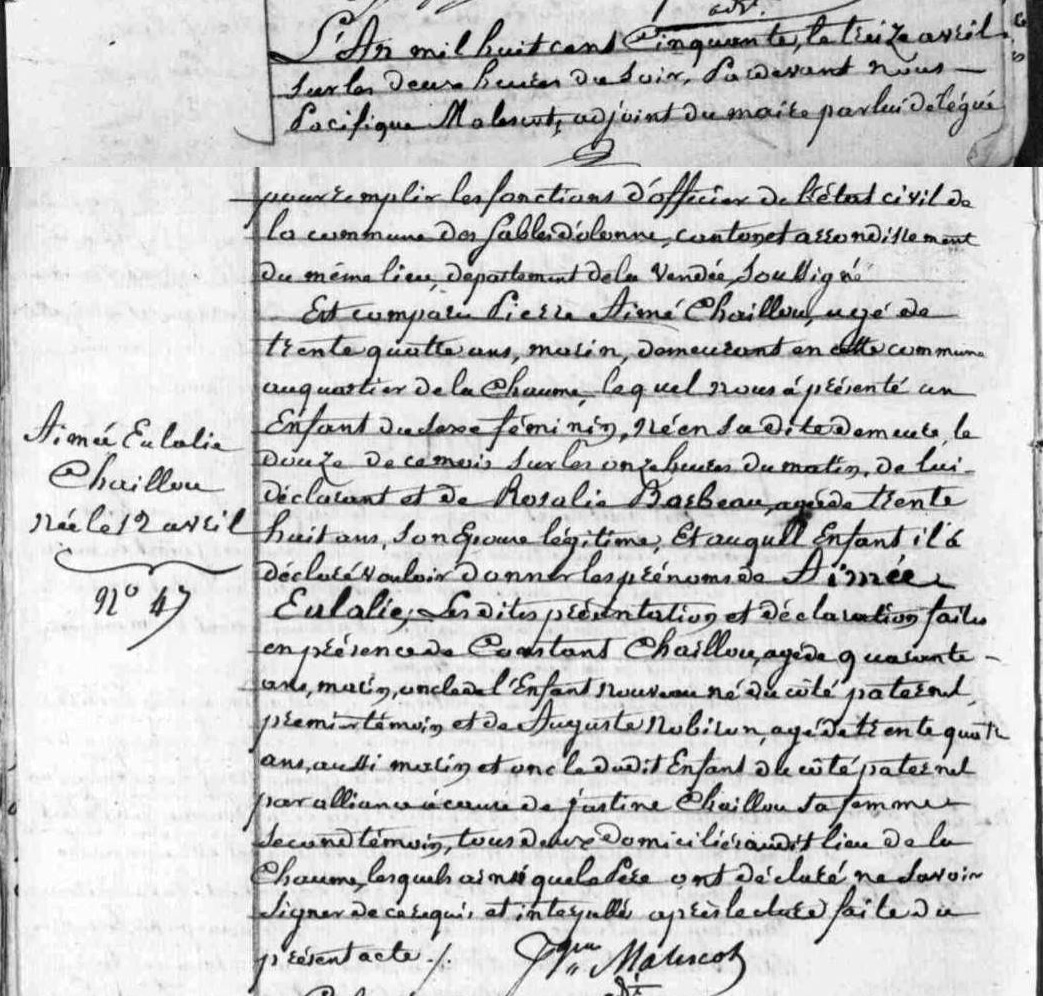 L'An mil huit cent Cinquante, le treize avril
sur les deux heures du soir, Pardevant nous
Pacifique Malescot, adjoint du maire par lui délégué
pour remplir les fonctions d'officier de l'état civil de
la commune des Sables d'olonne, canton et arrondissement
du même lieu, departement de la Vendée, soussigné
Est comparu Pierre Aimé Chaillou, agé de
trente quatre ans, marin, demeurant en cette commune
au quartier de la Chaume, lequel nous a présenté un
Enfant du sexe féminin, né en sa dite demeure, le
douze de ce mois sur les onze heures du matin, de lui
déclarant et de Rosalie Barbeau, agée de trente
huit ans, son Epouse légitime, Et auquel Enfant il a
déclaré vouloir donner les prénoms de Aimée
Eulalie; Les dites présentation et déclaration faites
en présence de Constant Chaillou, agé de quarante
ans, marin, oncle de l'Enfant nouveau né du côté paternel,
premier témoin et de Auguste Robin, agé de trente quatre
ans, aussi marin et oncle dudit Enfant du côté paternel
par alliance à cause de justine Chaillou sa femme
second témoin, tous deux domiciliés audit lieu de la
Chaume, lesquels ainsi que le Père ont déclaré ne savoir
signer de ce requis et interpellés après lecture faite du
présent acte ./.
Malescot
Aimée Eulalie
Chaillou
née le 12 avril
N° 47